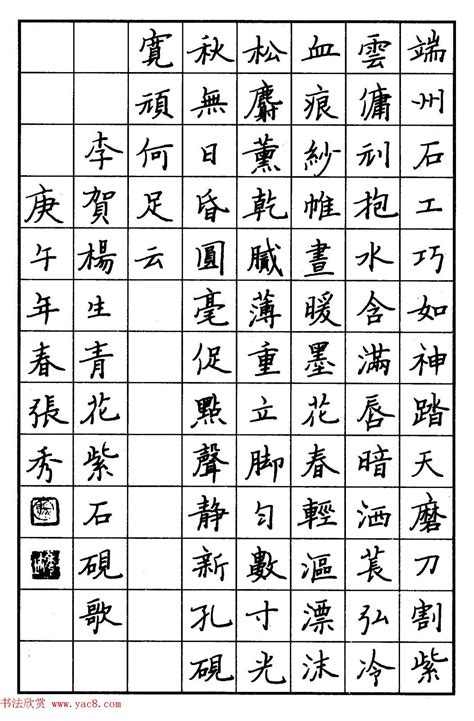 端州石工巧如神踏天磨刀割紫
雲傭刓抱水含滿唇暗洒萇弘冷
血痕紗帷晝暖墨花春輕漚漂沫
松麝薰乾膩薄重立脚勻數寸光
秋無日昏圓毫促點聲静新孔硯
寬頑何足云
李賀楊生青花紫石硯歌
庚午年春張秀
书法欣赏 www.yac8.com